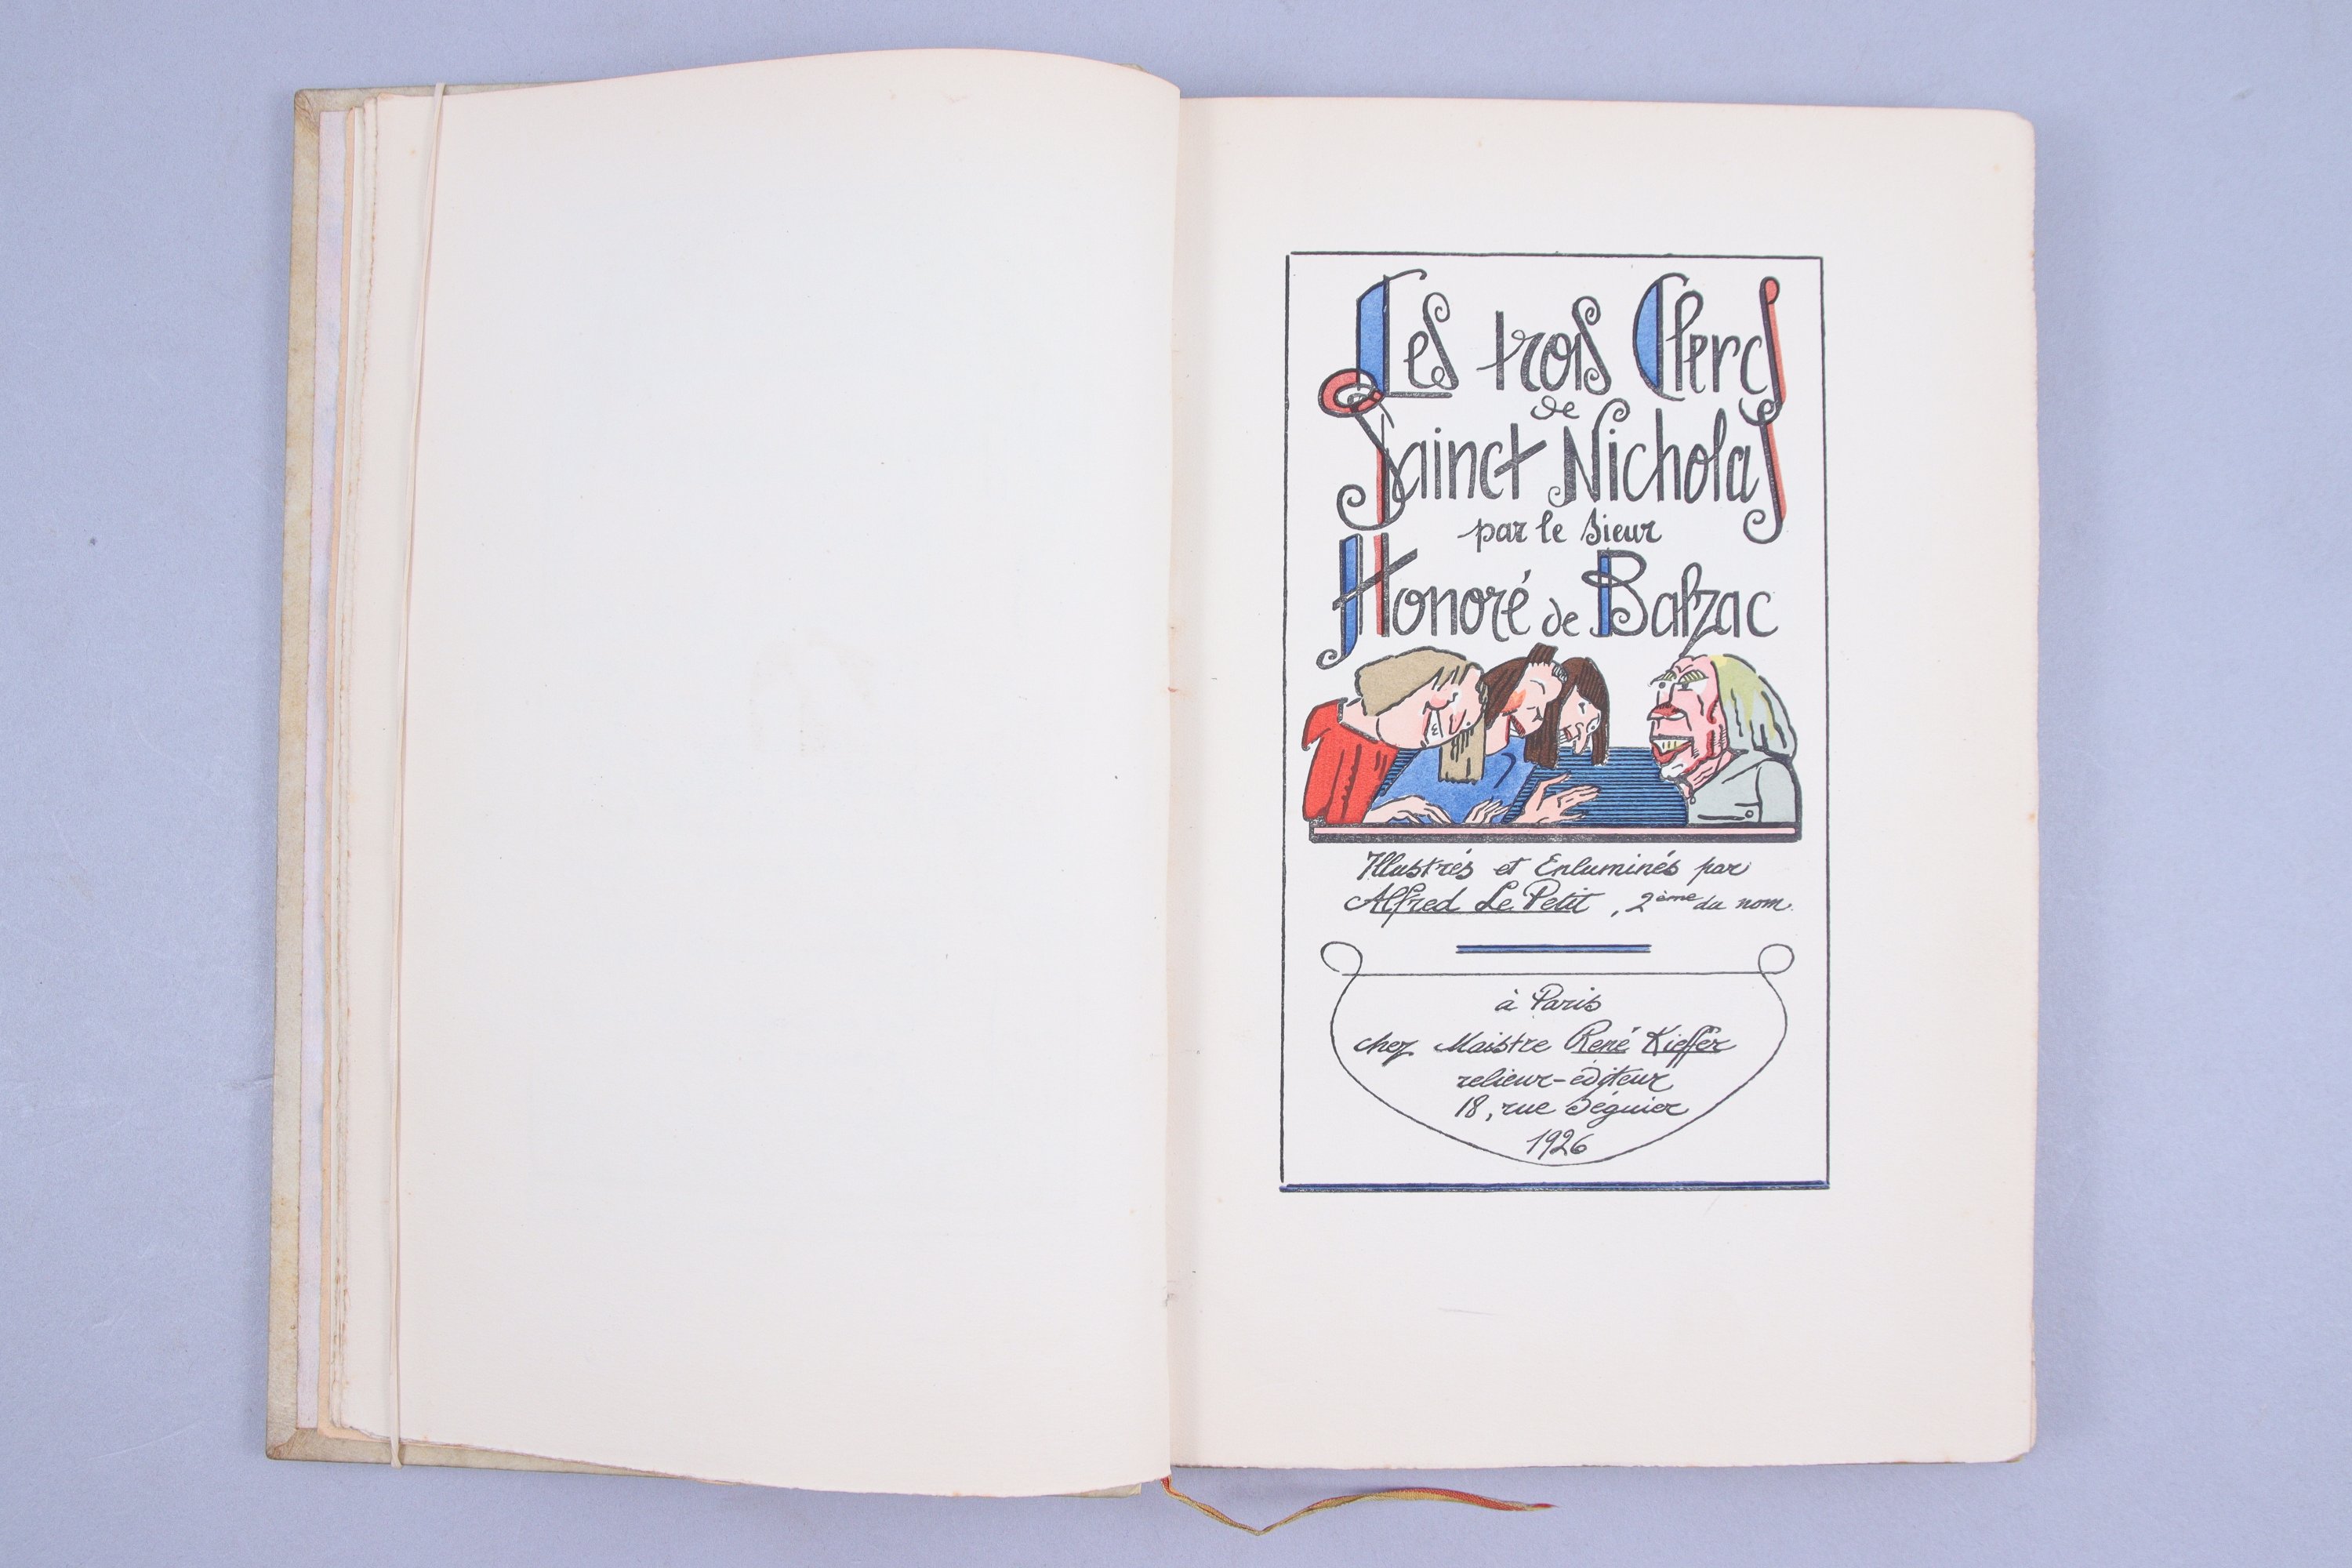 Les trois Clercs
de
Sainct Nicholas
par le sieur
Honoré de Balzac
Illustrés et Enluminés par
Alfred Le Petit, 2ème du nom.
à Paris
chez Maistre René Kieffer
relieur-éditeur
18, rue Séguier
1926